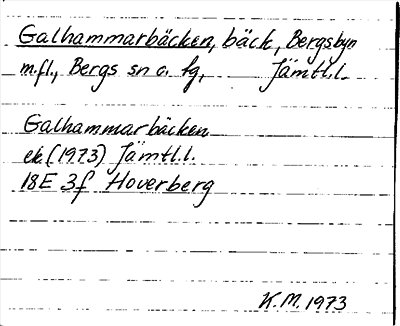 Galhammarbäcken, bäck, Bergsbyn
m.fl., Bergs sn o. tg, Jämtl.l.
Galhammarbäcken
ek (1973) Jämtl.l.
18E 3f Hoverberg
K.M. 1973